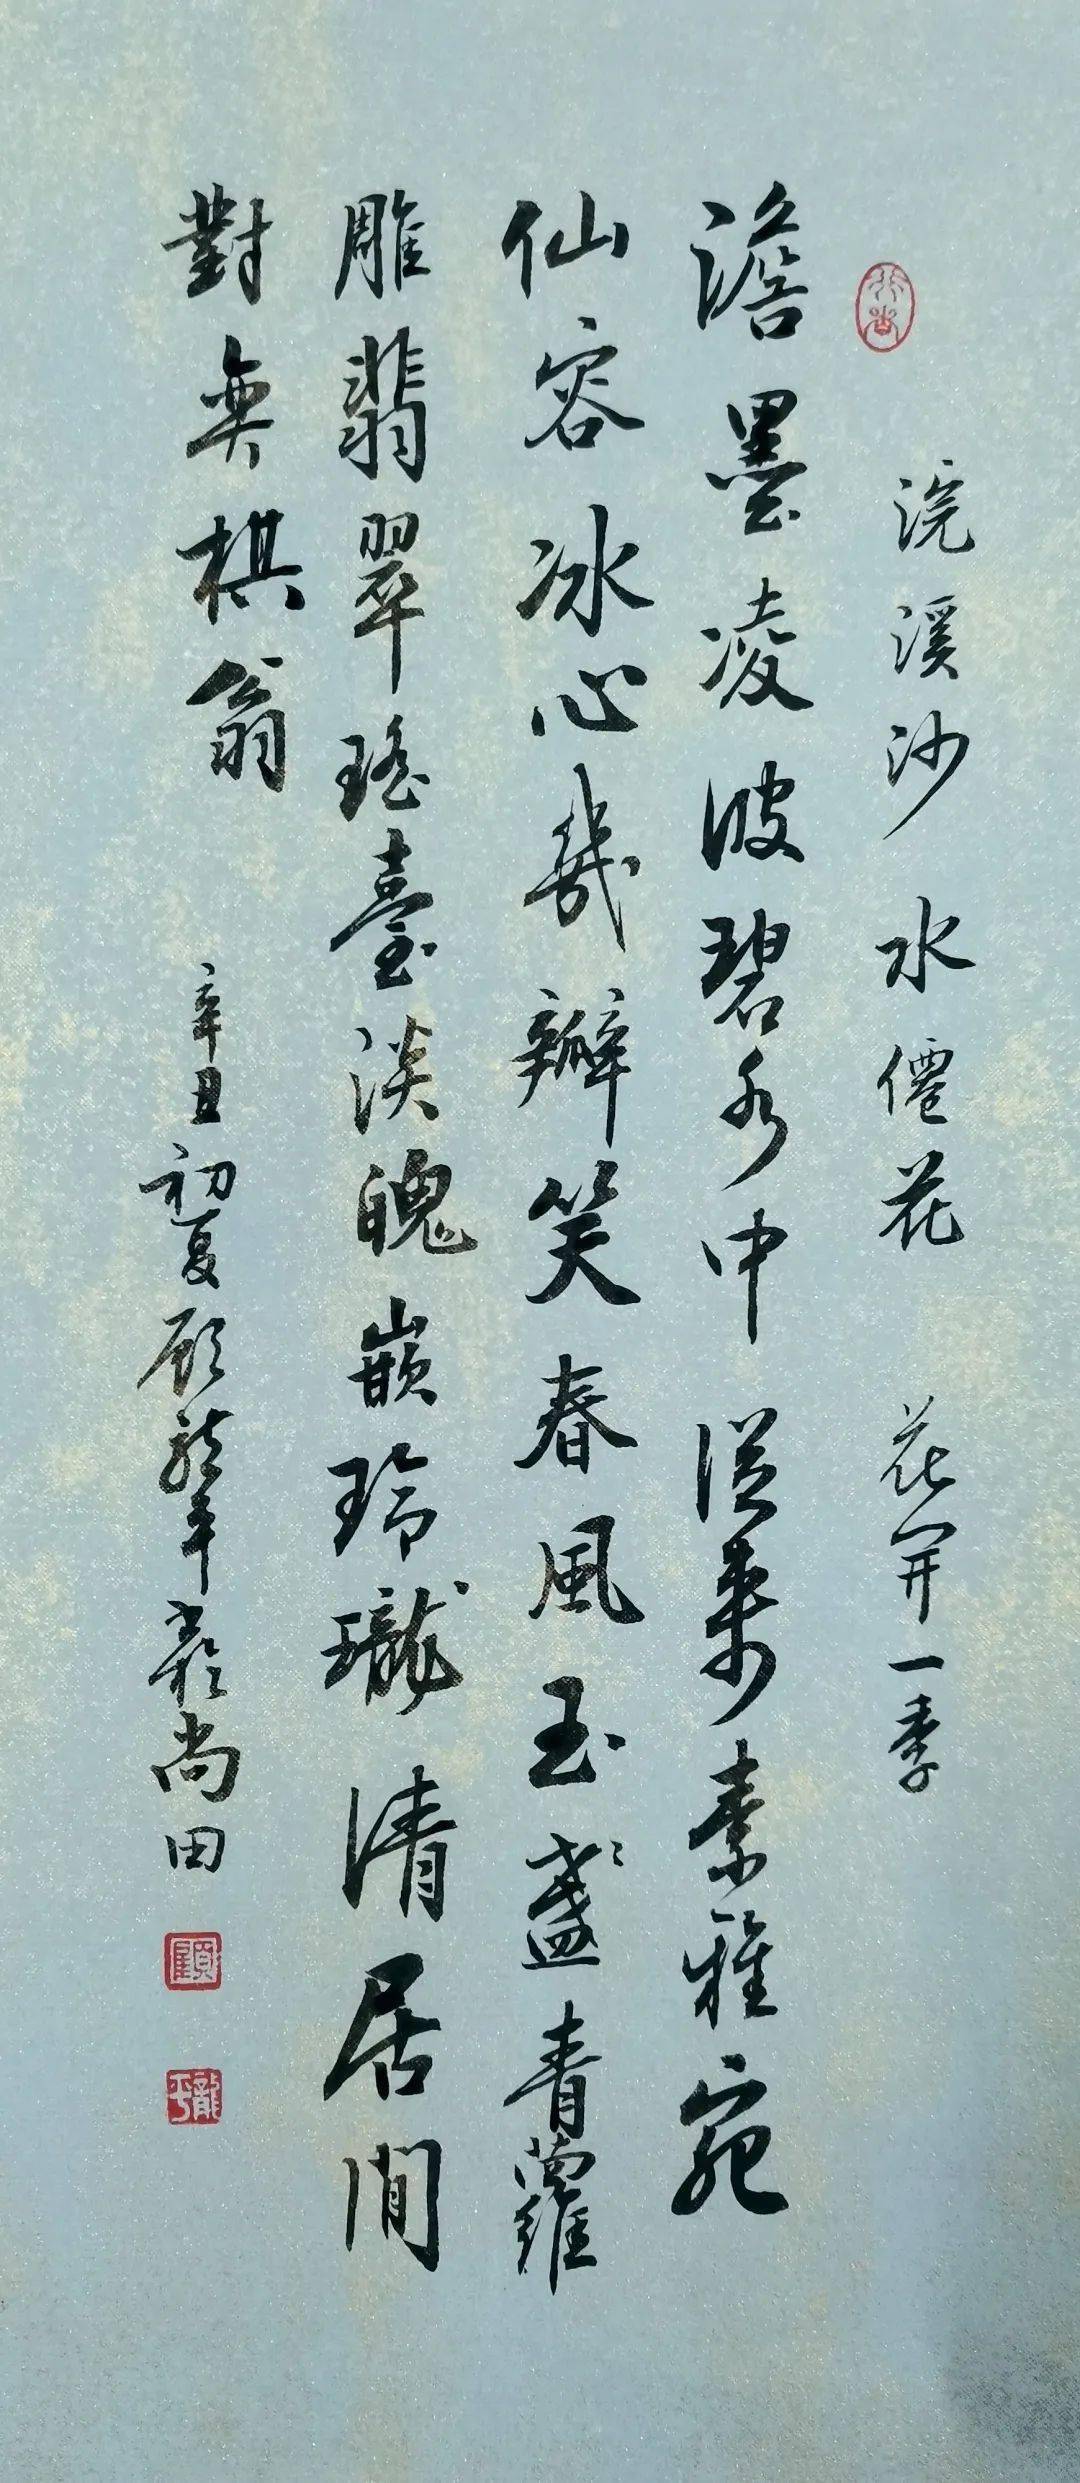 浣溪沙 水僊花 花開一季
澹墨凌波碧水中 從來素雅宛
仙容冰心幾瓣笑春風玉盞青蘿
雕翡翠瑤臺淡魄嵌玲瓏清居閒
對弈棋翁 辛丑初夏顾龍平書於尚田
顧
龍平